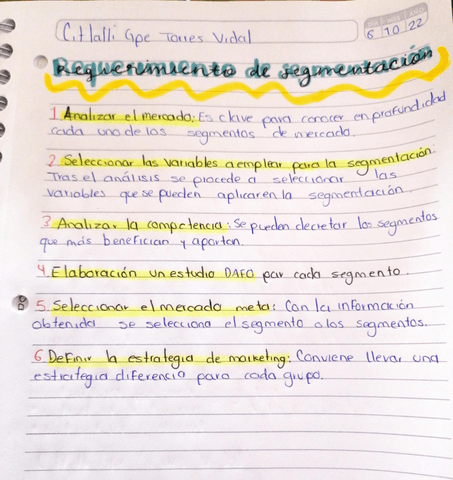 Citlalli Gpe Torres Vidal
DIA MES AÑO
6 10 22
Requerimiento de segmentación
1. Analizar el mercado: Es clave para conocer en profundidad
cada uno de los segmentos de mercado.
2. Seleccionar las variables a emplear para la segmentación:
Tras el análisis se procede a seleccionar las
variables que se pueden aplicar en la segmentación.
3. Analizar la competencia: Se pueden decretar los segmentos
que más benefician y aportan.
4. Elaboración un estudio DAFO por cada segmento.
5. Seleccionar el mercado meta: Con la información
obtenida se selecciona el segmento o los segmentos.
6. Definir la estrategia de marketing: Conviene llevar una
estrategia diferencia para cada grupo.